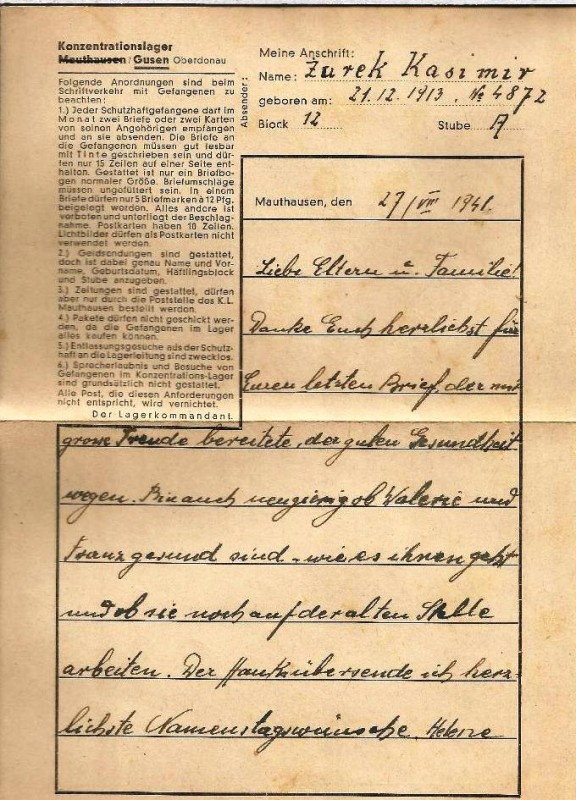 Konzentrationslager
Mauthausen / Gusen Oberdonau
Folgende Anordnungen sind beim
Schriftverkehr mit Gefangenen zu
beachten:
1.) Jeder Schutzhaftgefangene darf im
Monat zwei Briefe oder zwei Karten
von seinen Angehörigen empfangen
und an sie absenden. Die Briefe an
die Gefangenen müssen gut lesbar
mit Tinte geschrieben sein und dür-
fen nur 15 Zeilen auf einer Seite ent-
halten. Gestattet ist nur ein Briefbo-
gen normaler Größe. Briefumschläge
müssen ungefüttert sein. In einem
Briefe dürfen nur 5 Briefmarken à 12 Pfg.
beigelegt werden. Alles andere ist
verboten und unterliegt der Beschlag-
nahme. Postkarten haben 10 Zeilen.
Lichtbilder dürfen als Postkarten nicht
verwendet werden.
2.) Geldsendungen sind gestattet,
doch ist dabei genau Name und Vor-
name, Geburtsdatum, Häftlingsblock
und Stube anzugeben.
3.) Zeitungen sind gestattet, dürfen
aber nur durch die Poststelle des K.L.
Mauthausen bestellt werden.
4.) Pakete dürfen nicht geschickt wer-
den, da die Gefangenen im Lager
alles kaufen können.
5.) Entlassungsgesuche aus der Schutz-
haft an die Lagerleitung sind zwecklos.
6.) Sprecherlaubnis und Besuche von
Gefangenen im Konzentrations-Lager
sind grundsätzlich nicht gestattet.
Alle Post, die diesen Anforderungen
nicht entspricht, wird vernichtet.
Der Lagerkommandant.
Absender:
Meine Anschrift:
Name: Żurek Kasimir
geboren am: 21.12.1913. № 4872
Block 12 Stube A
Mauthausen, den 27/VIII 1941.
Liebe Eltern u. Familie!
Danke Euch herzlichst für
Euren letzten Brief, der mir
grosse Freude bereitete, der guten Gesundheit
wegen. Bin auch neugierig ob Valerie und
Franz gesund sind - wie es ihnen geht
und ob sie noch auf der alten Stelle
arbeiten. Der übersende ich herz-
lichste Namenstagswünsche. Helene